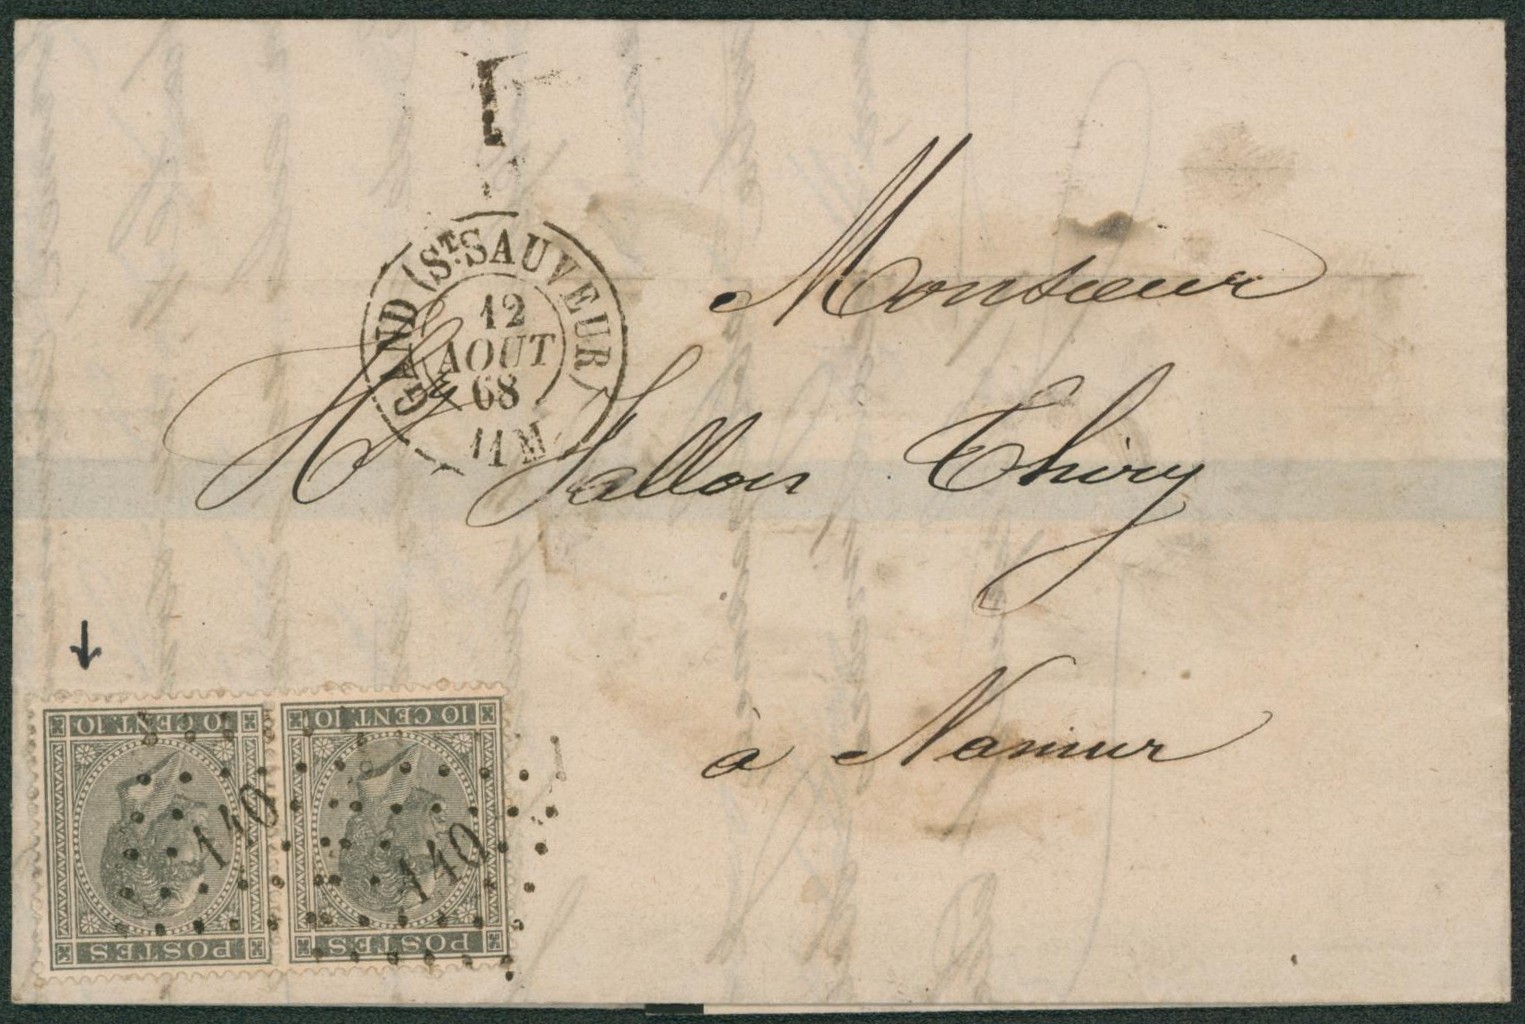 GAND (ST. SAUVEUR)
12
AOUT
68
11 M
Monsieur
H. Jallon Thiry
à Namur
10 CENT. 10
POSTES
140
10 CENT. 10
POSTES
140